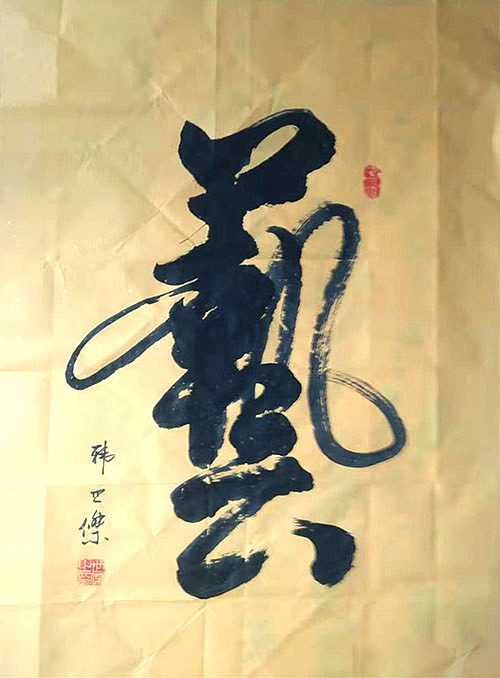 藝
韩世傑